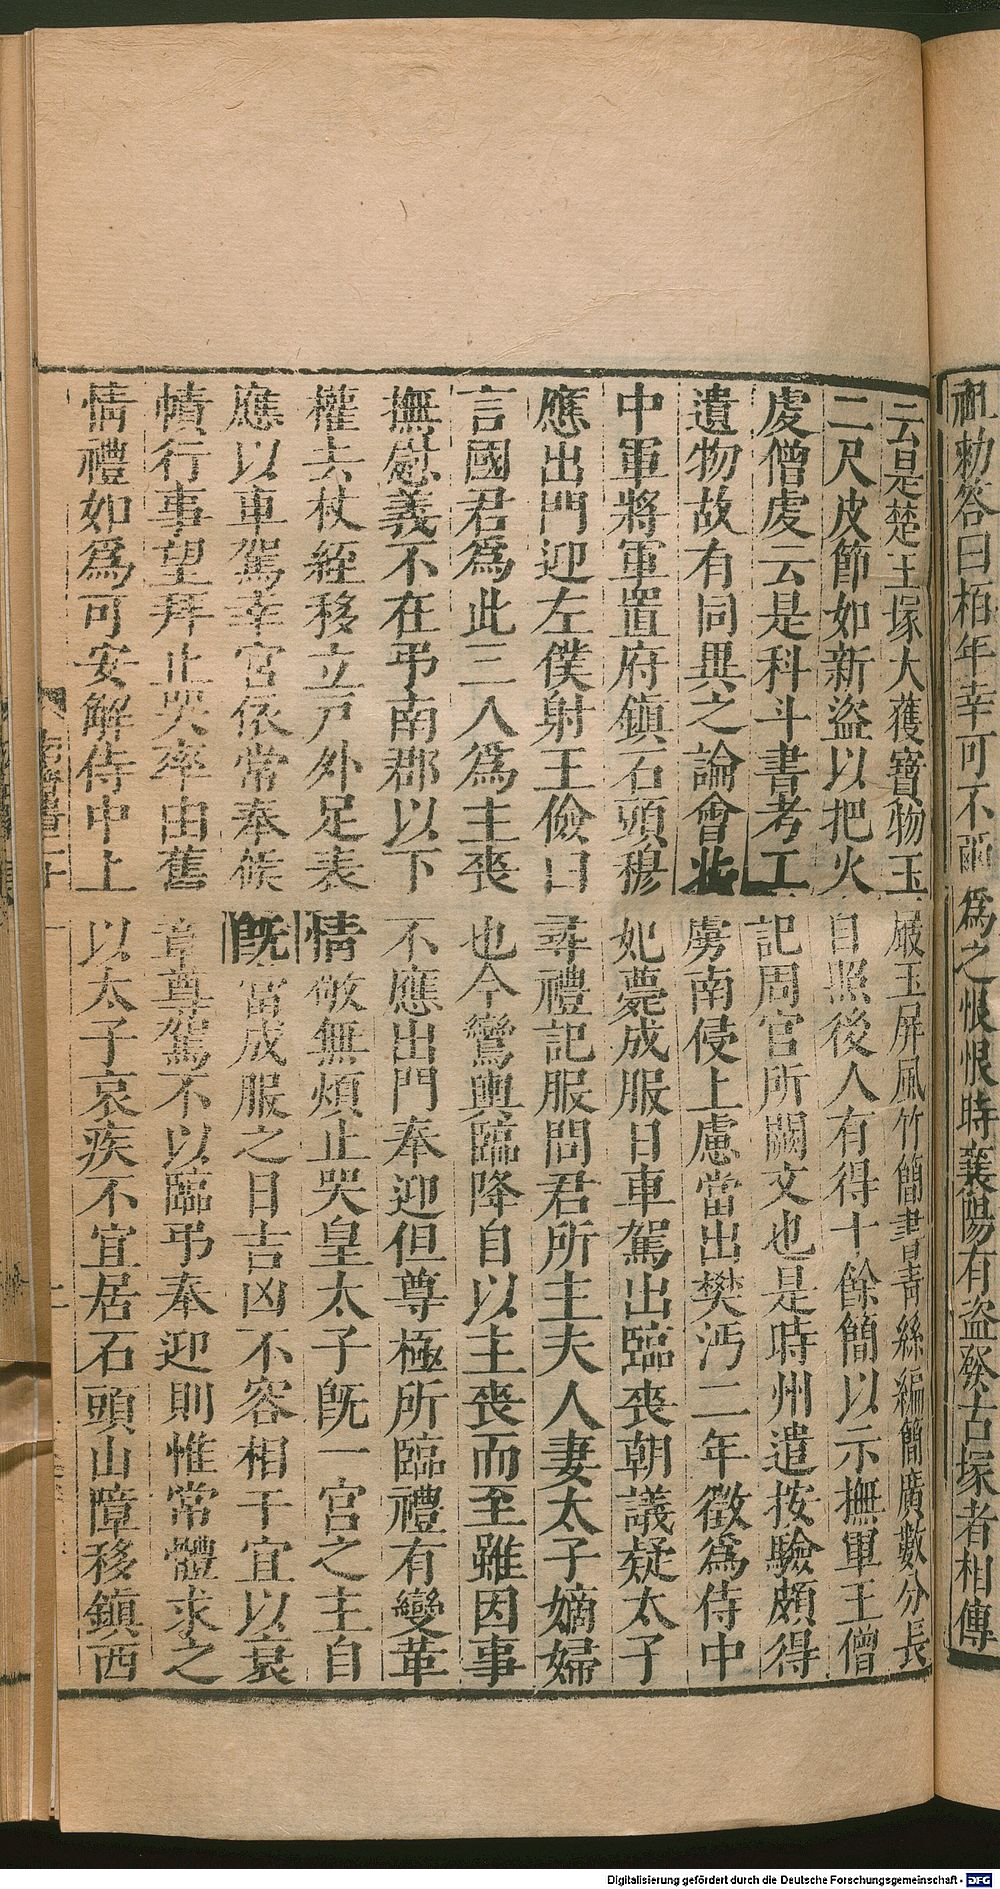 祖勅答曰栢年幸可不爾爲之恨恨時襄陽有盗發古塚者相傳
云是楚王塚大獲寶物玉屐玉屏風竹簡書青絲編簡廣數分長
二尺皮節如新盜以把火自照後人有得十餘簡以示撫軍王僧
虔僧虔云是科斗書考工記周官所闕文也是時州遣按驗頗得
遺物故有同異之論會北虜南侵上慮當出樊沔二年徵爲侍中
中軍將軍置府鎭石頭穆妃薨成服日車駕出臨喪朝議疑太子
應出門迎左僕射王儉曰尋禮記服問君所主夫人妻太子嫡婦
言國君爲此三人爲主喪也今鸞輿臨降自以主喪而至雖因事
撫慰義不在弔南郡以下不應出門奉迎但尊極所臨禮有變革
權去杖絰移立戸外足表情敬無煩止哭皇太子旣一宮之主自
應以車駕幸宮依常奉候旣當成服之日吉凶不容相干宜以衰
幘行事望拜止哭率由舊章尊駕不以臨弔奉迎則惟常體求之
情禮如爲可安解侍中上以太子哀疾不宜居石頭山障移鎭西
Digitalisierung gefördert durch die Deutsche Forschungsgemeinschaft - DFG